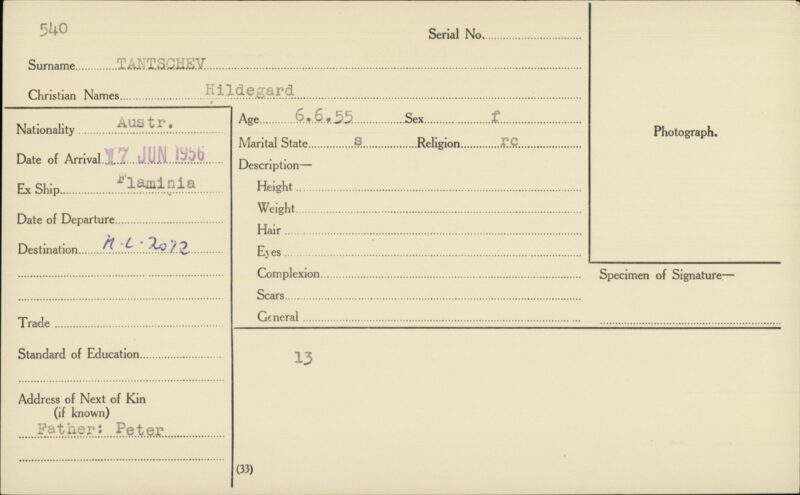 540
Serial No.
Surname TANTSCHEV
Christian Names Hildegard
Nationality Austr.
Date of Arrival 17 JUN 1956
Ex Ship Flaminia
Date of Departure
Destination
Trade
Standard of Education
Address of Next of Kin
(if known)
Father: Peter
Age 6.6.55 Sex f
Marital State s Religion rc
Description—
Height
Weight
Hair
Eyes
Complexion
Scars
General
13
(33)
Photograph.
Specimen of Signature—